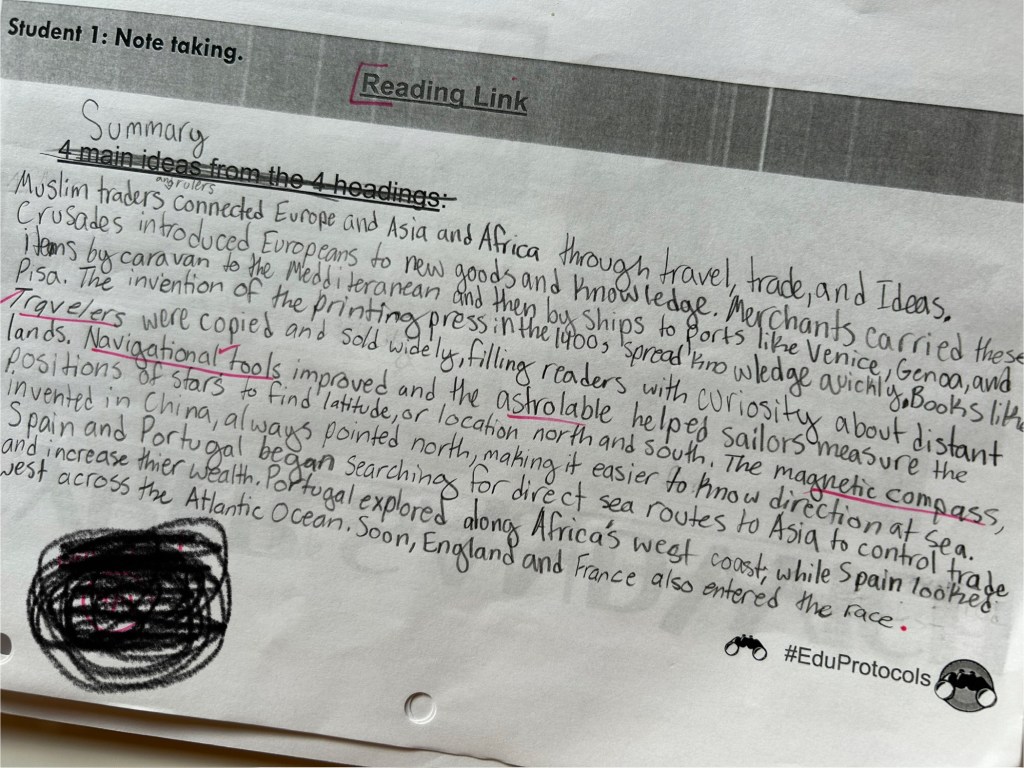 Student 1: Note taking.
Reading Link
Summary
4 main ideas from the 4 headings:
and rulers
Muslim traders connected Europe and Asia and Africa through travel, trade, and Ideas.
Crusades introduced Europeans to new goods and knowledge. Merchants carried these
items by caravan to the Medditeranean and then by ships to ports like Venice, Genoa, and
Pisa. The invention of the printing press in the 1400s spread knowledge quickly. Books like
Travelers were copied and sold widely, filling readers with curiosity about distant
lands. Navigational tools improved and the astrolable helped sailors measure the
positions of stars to find latitude, or location north and south. The magnetic compass,
invented in China, always pointed north, making it easier to know direction at sea.
Spain and Portugal began searching for direct sea routes to Asia to control trade
and increase thier wealth. Portugal explored along Africa's west coast, while Spain looked
west across the Atlantic Ocean. Soon, England and France also entered the race.
#EduProtocols